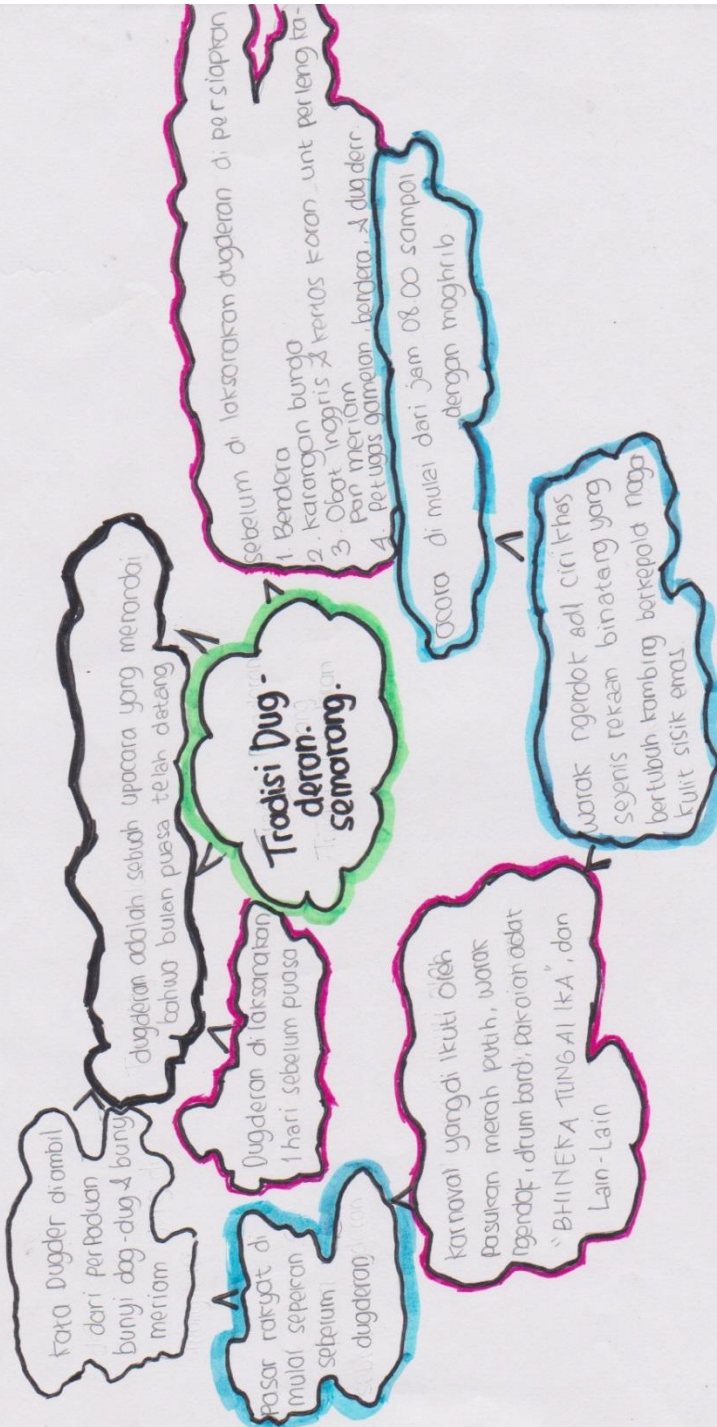 Tradisi Dug-
deran.
semarang.
dugderan adalah sebuah upacara yang menandai
bahwa bulan puasa telah datang
Kata Dugder diambil
dari perpaduan
bunyi dag-dug & bunyi
meriam
Dugderan dilaksanakan
1 hari sebelum puasa
Pasar rakyat di
mulai sepekan
sebelum
dugderan
Karnaval yang di ikuti oleh
pasukan merah putih, warak
ngendok, drum band, pakaian adat
"BHINEKA TUNGAL IKA", dan
Lain-Lain
warak ngendok adl ciri khas
sejenis rekaan binatang yang
bertubuh kambing berkepala naga
kulit sisik emas
acara di mulai dari jam 08.00 sampai
dengan maghrib
sebelum di laksanakan dugderan di persiapkan
1. Bendera
2. Karangan bunga
3. Obat Inggris & kertas koran unt perlengka-
pan meriam
4. Petugas gamelan, bendera, & dug derr.